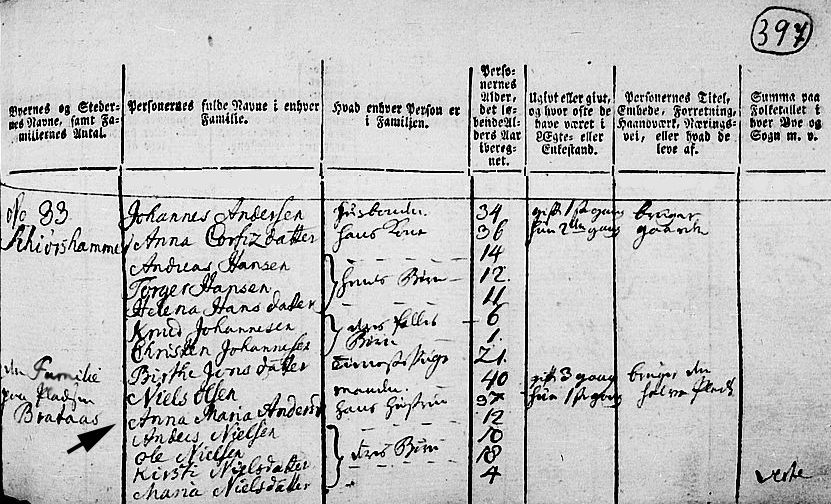 397
Byernes og Steder-
nes Navne, samt Fa-
miliernes Antal.
Personernes fulde Navne i enhver
Familie.
Hvad enhver Person er
i Familien.
Perso-
nernes
Alder,
det lø-
bende Al-
ders Aar
ibereg-
net.
Ugivt eller givt,
og hvor ofte de
have været i
Ægte- eller
Enkestand.
Personernes Titel,
Embede, Forretning,
Haandværk, Nærings-
vei, eller hvad de
leve af.
Summa paa
Folketallet i
hver Bye og
Sogn m. v.
No 33 Johannes Andersen 34 gift 1ste gang bruger
Anna Corfizdatter hans Kone 36 hun 2den gang gaarde
Andreas Hansen 14
Tørger Hansen hendes Børn 12
Helena Hans datter 11
Knud Johannesen deres fælles 6
Christen Johannesen Børn 1
Birthe Jons datter 21
den Familie Niels Olsen manden 40 gift 3 gang bruger den
paa Pladsen Anna Maria Anders hans hustrue 37 hun 1ste gang halve Plads
Brataas Anders Nielsen 12
Ole Nielsen deres Børn 10
Kirsti Nielsdatter 18
Maria Nielsdatter 4